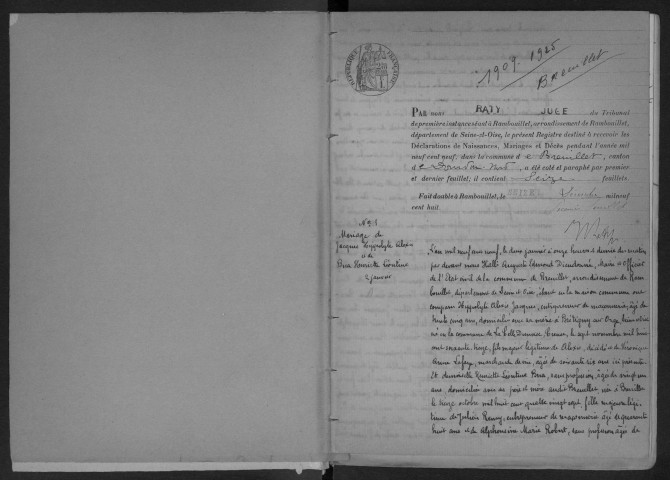 RÉPUBLIQUE FRANÇAISE
1909. 1925
Breuillet
PAR nous RATY JUGE du Tribunal
de première instance séant à Rambouillet, arrondissement de Rambouillet,
département de Seine-et-Oise, le présent Registre destiné à recevoir les
Déclarations de Naissances, Mariages et Décès pendant l'année mil
neuf cent neuf, dans la commune de Breuillet, canton
de Dourdan Nord, a été coté et paraphé par premier
et dernier feuillet; il contient Seize feuillets.
Fait double à Rambouillet, le SEIZE milneuf
cent huit.
No 1
Mariage de
Jacques Hippolyte Alexis
et de
Bria Henriette Léontine
2 janvier
L'an mil neuf cent neuf, le deux janvier à onze heures du matin
par devant nous Auguste Edmond Dieudonné, Maire et Officier
de l'Etat civil de la commune de Breuillet, arrondissement de Ram-
bouillet, département de Seine et Oise, en la maison commune ont
comparu Hippolyte Alexis Jacques, entrepreneur de maçonnerie, âgé de
trente cinq ans, domicilié avec sa mère à Brétigny sur Orge,
né en la commune de la Celle Dunoise, Creuse, le sept novembre mil huit
cent soixante treize, fils majeur légitime de Alexis, décédé et de Véronique
Anne, marchande de vin, âgée de soixante six ans ici présente
Et demoiselle Henriette Léontine Bria, sans profession, âgée de vingt un
ans, domiciliée avec ses père et mère audit Breuillet, née à Breuillet
le treize octobre mil huit cent quatre vingt sept, fille majeure légi-
time de Julien, entrepreneur de maçonnerie âgé de quarante
huit ans et de Alphonsine Marie Robert, sans profession âgée de